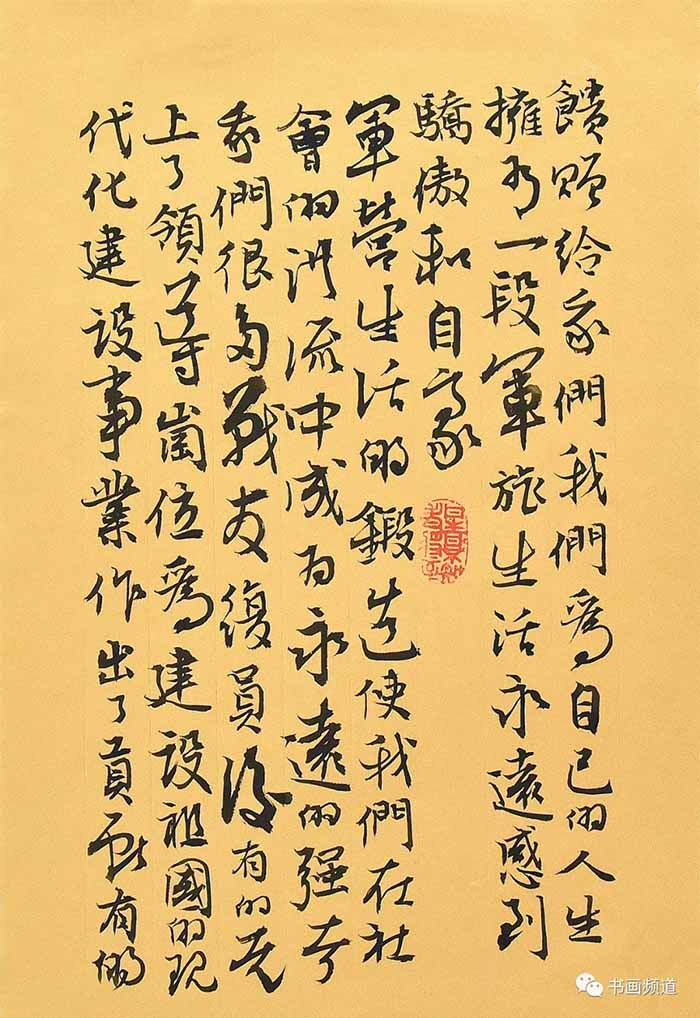 馈赠给我們我們為自己的人生
擁有一段軍旅生活永遠感到
驕傲和自豪
軍營生活的鍛造使我們在社
會的洪流中成为永遠的强者
我們很多戰友復員後有的走
上了領导崗位為建設祖國的現
代化建設事業作出了貢献有的
书画频道